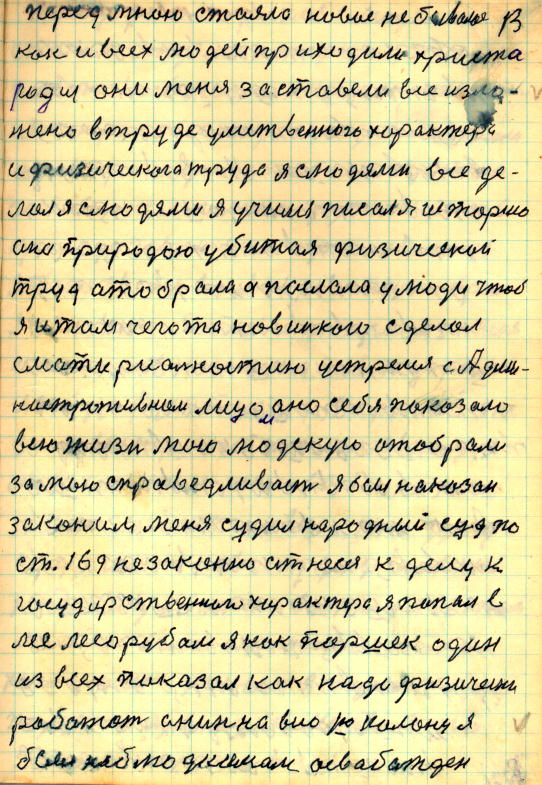 перед мною стояло новое небывалое 13
как и всех людей приходили христа
ради они меня заставели все изло-
жено в труде умственного характера
и физического труда я слюдями все де-
лал я слюдями я учимя писал я
она природою убитая физической
труд атобрала а послала у люди чтоб
я итам чегота новинкого сделал
сматириалностию устремя с Адми-
ностротивном лицом ано себя показало
всю жизн мою людскую отобрали
за мою справедливаст я был наказан
законим меня судил народный суд по
ст. 169 незаконно отнеся к делу к
государственного характера я попал в
лес лесорубам я как паршек один
из всех показал как надо физически
работат
был наблюдкимам асвабажден